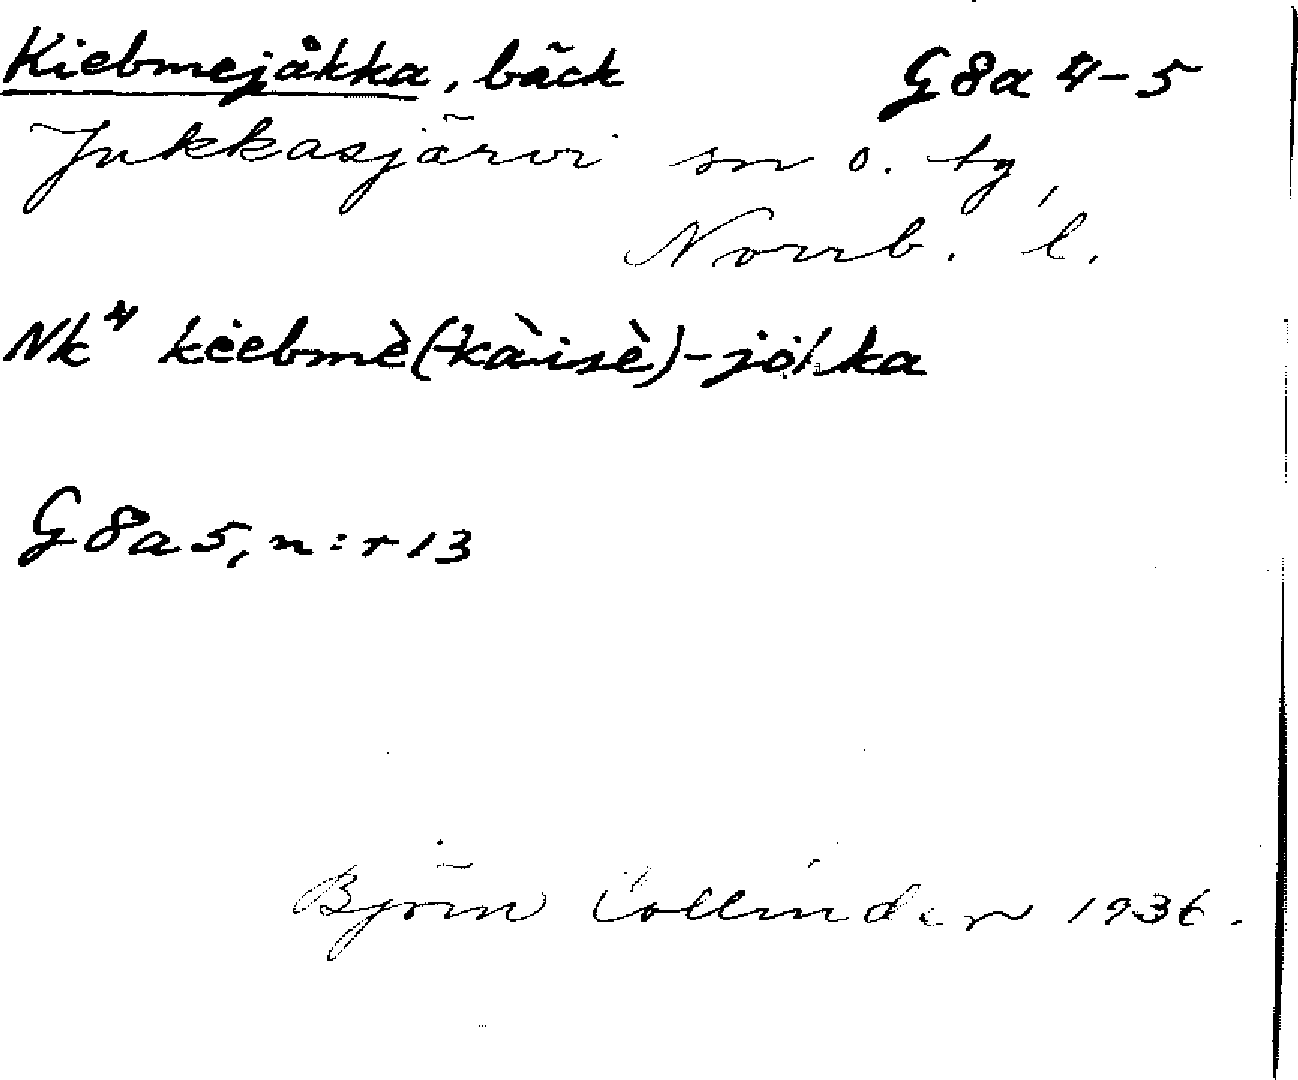 Kiebmejåkka, bäck G8a 4-5
Jukkasjärvi sn o. tg,
Norrb. l.
Nk⁴ kèebmè(-kàisè)-jòhka
G8a5, n:r 13
Björn Collinder 1936.